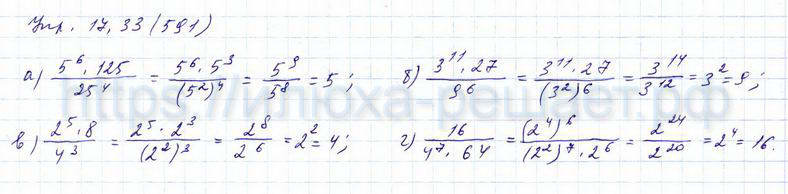 Упр. 17.33 (591)
а) \frac{5^6 \cdot 125}{25^4} = \frac{5^6 \cdot 5^3}{(5^2)^4} = \frac{5^9}{5^8} = 5; б) \frac{3^{11} \cdot 27}{9^6} = \frac{3^{11} \cdot 27}{(3^2)^6} = \frac{3^{14}}{3^{12}} = 3^2 = 9;
в) \frac{2^5 \cdot 8}{4^3} = \frac{2^5 \cdot 2^3}{(2^2)^3} = \frac{2^8}{2^6} = 2^2 = 4; г) \frac{16}{4^7 \cdot 64} = \frac{(2^4)^6}{(2^2)^7 \cdot 2^6} = \frac{2^{24}}{2^{20}} = 2^4 = 16.
https://илюха-решает.рф